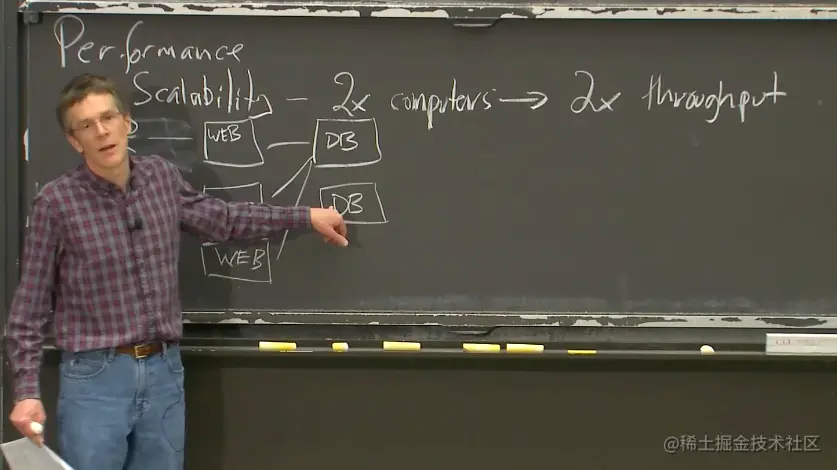 Performance
Scalability — 2x computers → 2x throughput
WEB
DB
DB
WEB
@稀土掘金技术社区